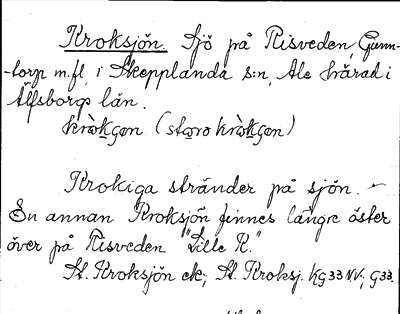 Kroksjön. Sjö på Risveden, Gunn-
-torp m.fl. i Skepplanda s:n, Ale härad i
Älfsborgs län.
krò̀kgɷn (stɷro krò̀kgɷn)
Krokiga stränder på sjön. –
En annan Kroksjön finnes längre öster
över på Risveden "Lille K."
St. Kroksjön ek; St. Kroksj. KG33 NV; G33.